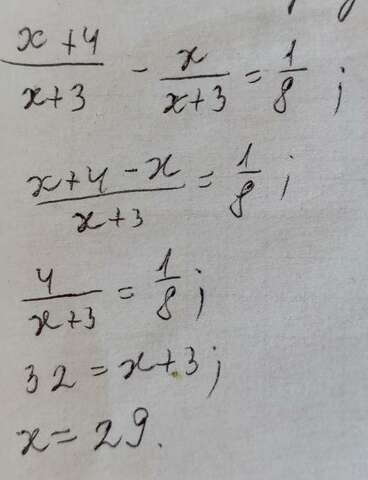 (x+4)/(x+3) - x/(x+3) = 1/8 ;
(x+4-x)/(x+3) = 1/8 ;
4/(x+3) = 1/8 ;
32 = x+3 ;
x = 29.